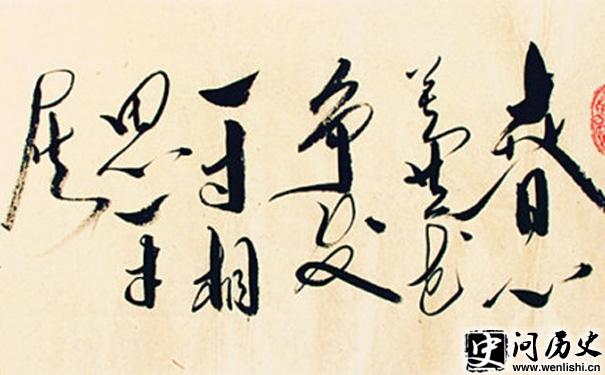 春心
莫共花
争发
一寸相
思一寸
灰
问历史
www.wenlishi.cn